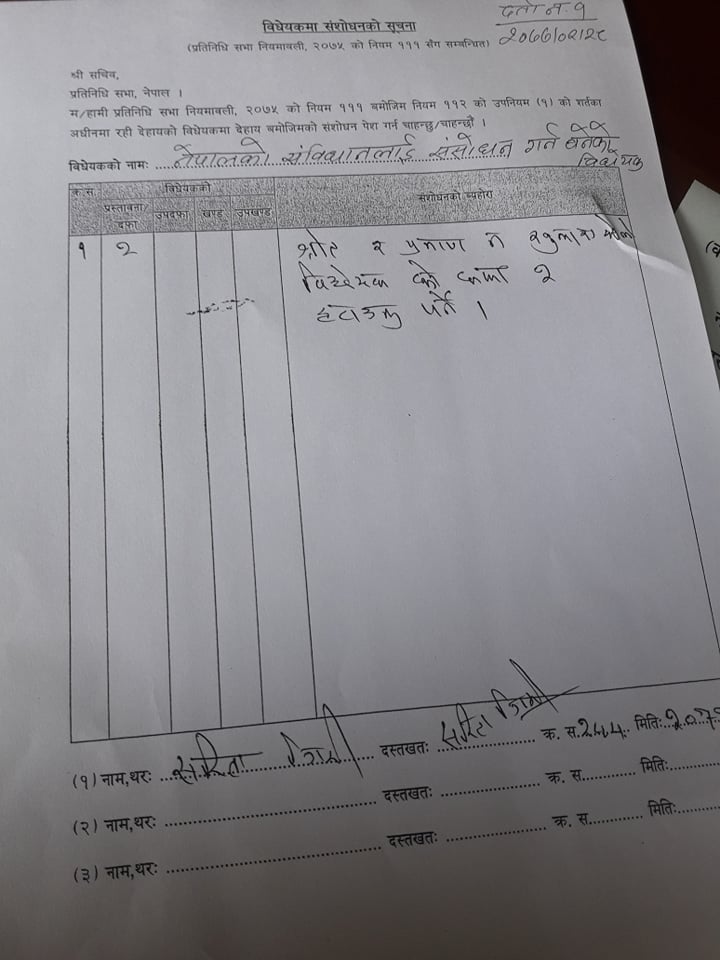 दर्ता नं. १
२०७७/०२/२८
विधेयकमा संशोधनको सूचना
(प्रतिनिधि सभा नियमावली, २०७५ को नियम १११ सँग सम्बन्धित)
श्री सचिव,
प्रतिनिधि सभा, नेपाल ।
म/हामी प्रतिनिधि सभा नियमावली, २०७५ को नियम १११ बमोजिम नियम ११२ को उपनियम (१) को शर्तका
अधीनमा रही देहायको विधेयकमा देहाय बमोजिमको संशोधन पेश गर्न चाहन्छु/चाहन्छौं ।
विधेयकको नामः नेपालको संविधानलाई संसोधन गर्न बनेको
विधेयक
क्र.स. विधेयकको संशोधनको व्यहोरा
प्रस्तावना/दफा उपदफा खण्ड उपखण्ड
१ २ श्रोत र प्रमाण न
विधेयक को दफा २
हटाउनु पर्ने ।
(१) नाम,थरः सरिता गिरी दस्तखतः सरिता गिरी क्र. स. २५५ मितिः २०७
(२) नाम,थरः दस्तखतः क्र. स. मितिः
(३) नाम,थरः दस्तखतः क्र. स. मितिः